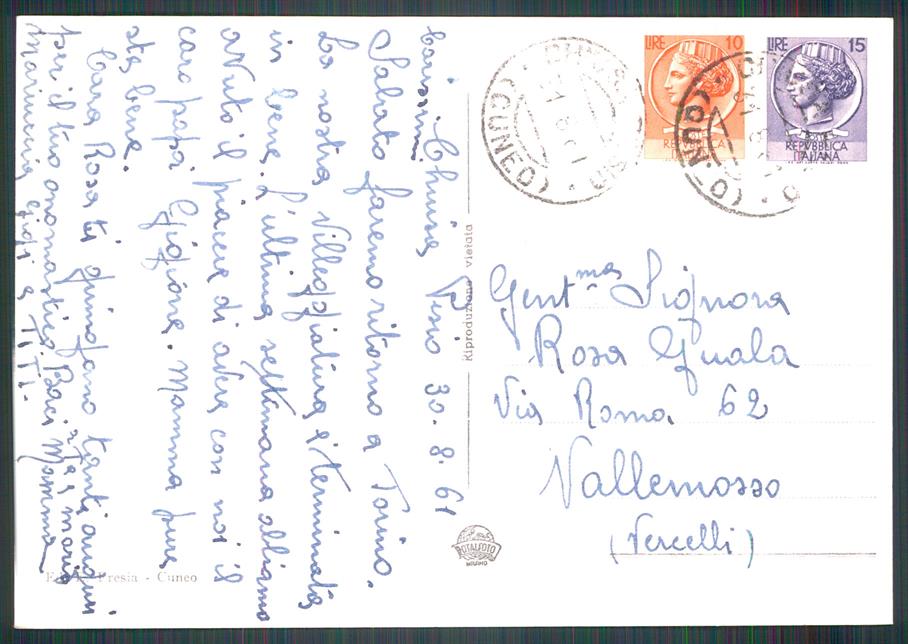 Chiusa Pesio 30.8.61
Carissimi
Sabato faremo ritorno a Torino.
La nostra villeggiatura è terminata
in bene. L'ultima settimana abbiamo
avuto il piacere di avere con noi il
caro papà Gigione. Mamma pure
sta bene.
Cara Rosa ti giungano tanti auguri
per il tuo onomastico. Baci Mamma
Mariuccia Gigi e Titti.
LIRE 10
POSTE
REPVBBLICA
ITALIANA
LIRE 15
POSTE
REPVBBLICA
ITALIANA
(CUNEO)
(CUNEO)
Gent.ma Signora
Rosa Guala
Via Roma 62
Vallemosso
(Vercelli)
Riproduzione vietata
ROTALFOTO
MILANO
Presia - Cuneo